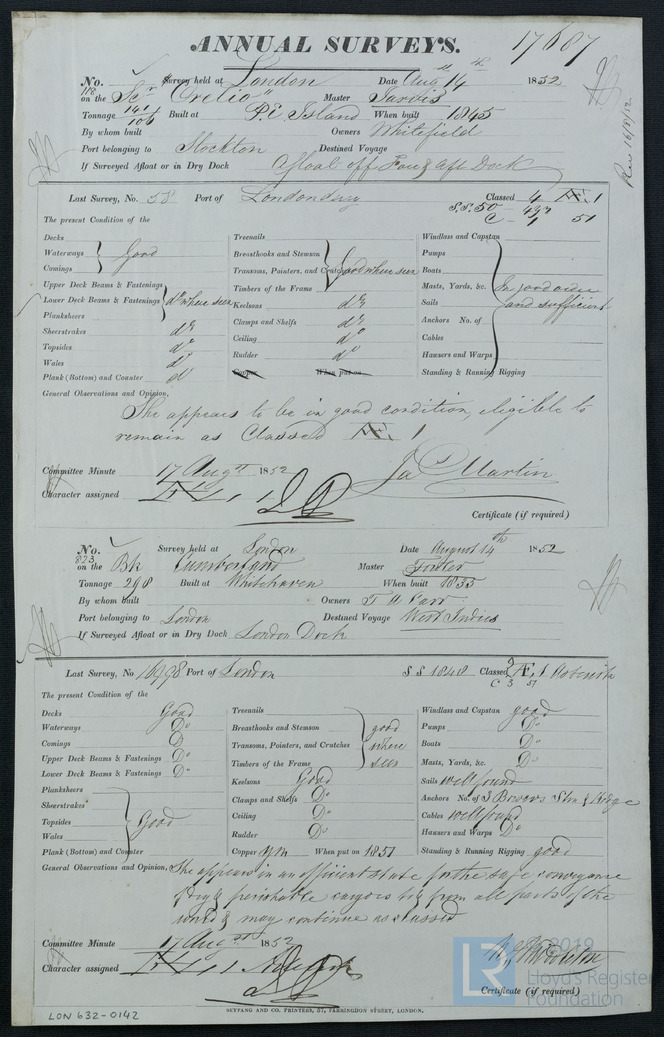 ANNUAL SURVEYS. 17687
No. Survey held at London Date Augt 14th 1852
on the Scr "Orelio" Master Jarvis
Tonnage 141/106 Built at P.E. Island When built 1845
By whom built Owners Whitefield
Port belonging to Stockton Destined Voyage
If Surveyed Afloat or in Dry Dock Afloat off Fore & Aft Dock
Rec 16/8/52
Last Survey, No. 58 Port of Londonderry Classed 4 Æ 1
S.S. 50
The present Condition of the
Decks
Waterways Good
Comings
Upper Deck Beams & Fastenings
Lower Deck Beams & Fastenings do where seen
Planksheers
Sheerstrakes do
Topsides do
Wales do
Plank (Bottom) and Counter do
Treenails
Breasthooks and Stemson
Transoms, Pointers, and Crutches Good where seen
Timbers of the Frame
Keelsons do
Clamps and Shelfs do
Ceiling do
Rudder do
Copper When put on
Windlass and Capstan
Pumps
Boats
Masts, Yards, &c. In good order
Sails and sufficient
Anchors No. of
Cables
Hausers and Warps
Standing & Running Rigging
General Observations and Opinion,
She appears to be in good condition, eligible to
remain as Classed Æ 1
Committee Minute 17 Augst 1852
Jas Martin
Character assigned Æ 1
Certificate (if required)
No. Survey held at London Date August 14th 1852
823
on the Bk Cumberland Master Fowler
Tonnage 298 Built at Whitehaven When built 1835
By whom built Owners
Port belonging to London Destined Voyage West Indies
If Surveyed Afloat or in Dry Dock London Dock
Last Survey, No. 16998 Port of London S S 1848 Classed Æ 1
The present Condition of the
Decks Good
Waterways Do
Comings Do
Upper Deck Beams & Fastenings Do
Lower Deck Beams & Fastenings Do
Planksheers
Sheerstrakes
Topsides Good
Wales
Plank (Bottom) and Counter
Treenails
Breasthooks and Stemson good
Transoms, Pointers, and Crutches where
Timbers of the Frame seen
Keelsons Good
Clamps and Shelfs Do
Ceiling Do
Rudder Do
Copper Ym When put on 1851
Windlass and Capstan good
Pumps Do
Boats Do
Masts, Yards, &c. Do
Sails well found
Anchors No. of 3 Bowers Stm & Kedge
Cables well found
Hausers and Warps Do
Standing & Running Rigging good
General Observations and Opinion, She appears in an efficient state for the safe conveyance
of dry & perishable cargoes to & from all parts of the
world & may continue as classed
Committee Minute 17 Augst 1852
Character assigned Æ 1
Certificate (if required)
SEYFANG AND CO. PRINTERS, 57, FARRINGDON STREET, LONDON.
LON 632-0142
LR
2019
Lloyd's Register
Foundation